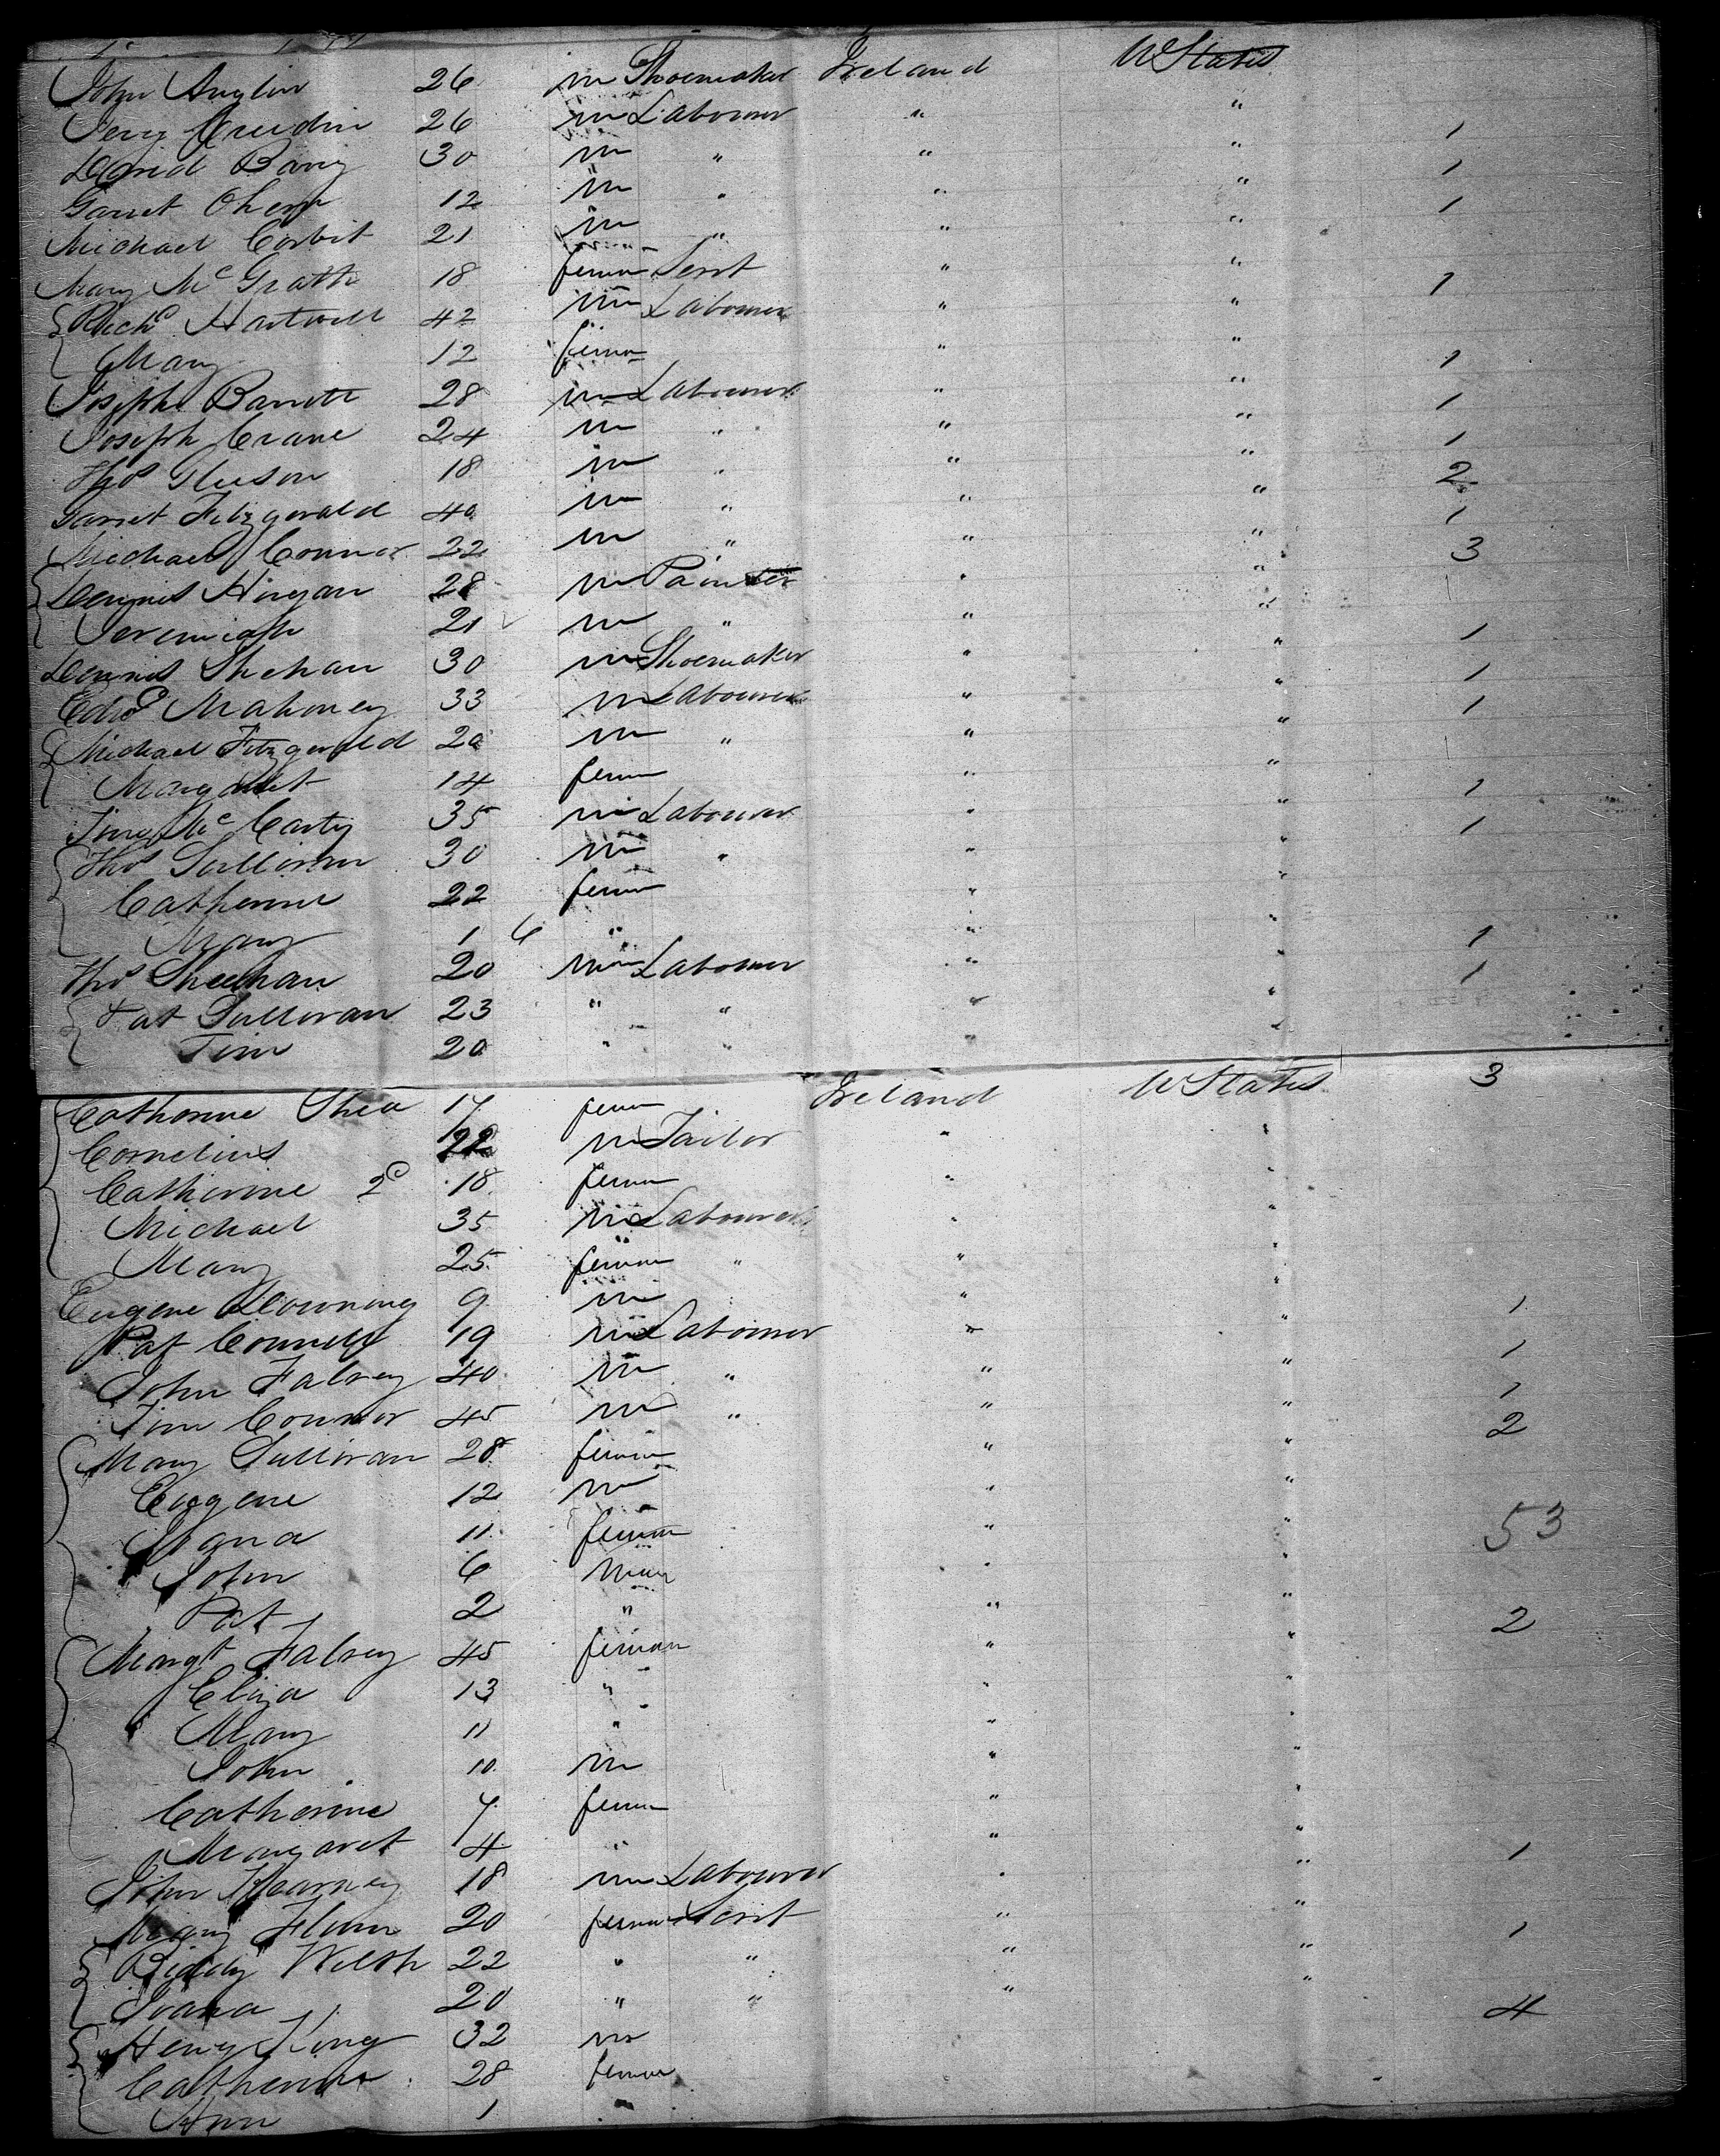 John Anglin 26 m Shoemaker Ireland U States
Jerry Creedin 26 m Labourer " "
David Barry 30 m " " " 1
Garret Ohern 12 m " " " 1
Michael Corbit 21 m " " " 1
Mary McGrath 18 fem Servt " "
Richd Hartwell 42 m Labourer " " 1
Mary 12 fem " "
Joseph Barrett 28 m Labourer " " 1
Joseph Crane 24 m " " " 1
Thos Gleeson 18 m " " " 1
Garret Fitzgerald 40 m " " " 2
Michael Connor 22 m " " " 1
Dennis Hingan 28 m Painter " " 3
Jeremiah 21 m " " "
Dennis Shehan 30 m Shoemaker " " 1
Edwd Mahoney 33 m Labourer " " 1
Michael Fitzgerald 20 m " " " 1
Margaret 14 fem " "
Timy McCarty 35 m Labourer " " 1
Thos Sullivan 30 m " " " 1
Catherine 22 fem " "
Mary 1 6 " " "
Thos Sheehan 20 m Labourer " " 1
Pat Sullivan 23 " " " " 1
Tim 20 " " " "
Catherine Shea 17 fem Ireland U States 3
Cornelius 22 m Tailor " "
Catherine 2d 18 fem " "
Michael 35 m Labourer " "
Mary 25 fem " " "
Eugene Downing 9 m " " 1
Pat Connell 19 m Labourer " " 1
John Falvey 40 m " " " 1
Tim Connor 45 m " " " 2
Mary Sullivan 28 fem " "
Eugene 12 m " "
Joana 11 fem " " 53
John 6 m " "
Pat 2 " " " 2
Margt Falvey 45 fem " "
Eliza 13 " " "
Mary 11 " " "
John 10 m " "
Catherine 7 fem " "
Margaret 4 " " " 1
John Kearney 18 m Labourer " "
Mary Flinn 20 fem Servt " " 1
Biddy Welsh 22 " " " "
Joana 20 " " " " 4
Henry King 32 m
Catherine 28 fem
Ann 1 "